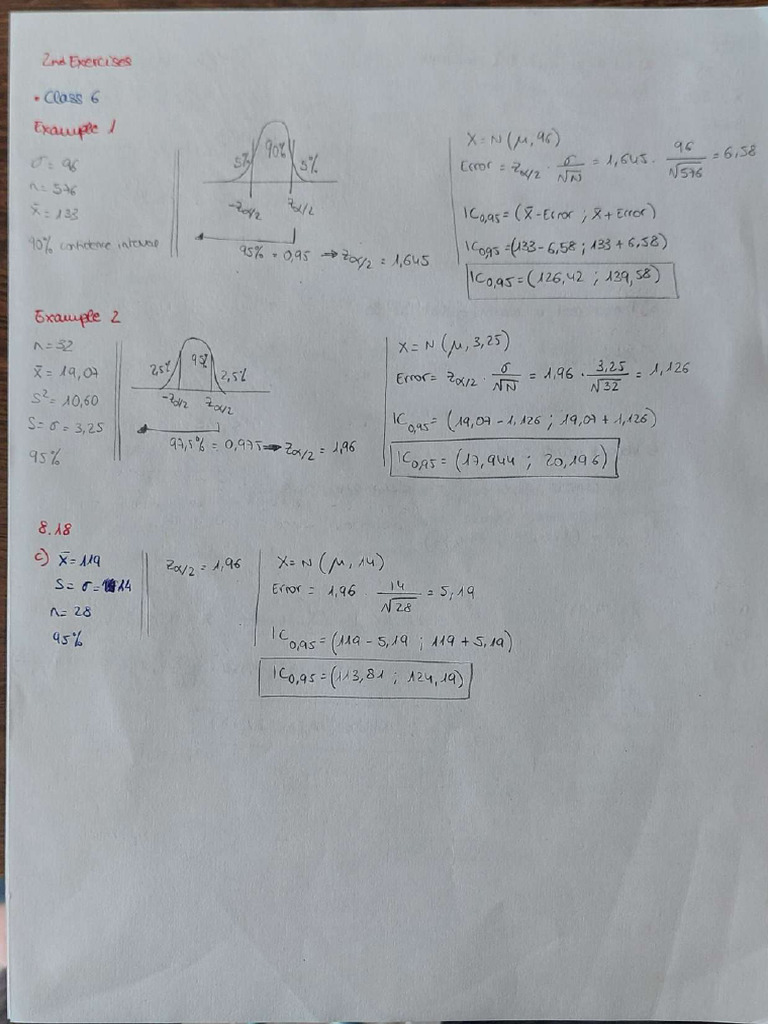 2nd Exercises
• Class 6
Example 1
σ = 96
n = 576
x̄ = 133
90% confidence interval
5% 90% 5%
-Zα/2 Zα/2
95% = 0,95 → Zα/2 = 1,645
X = N(μ, 96)
Error = Zα/2 · σ/√N = 1,645 · 96/√576 = 6,58
IC0,95 = (x̄ - Error ; x̄ + Error)
IC0,95 = (133 - 6,58 ; 133 + 6,58)
IC0,95 = (126,42 ; 139,58)
Example 2
n = 32
x̄ = 19,07
S² = 10,60
S = σ = 3,25
95%
2,5% 95% 2,5%
-Zα/2 Zα/2
97,5% = 0,975 → Zα/2 = 1,96
X = N(μ, 3,25)
Error = Zα/2 · σ/√N = 1,96 · 3,25/√32 = 1,126
IC0,95 = (19,07 - 1,126 ; 19,07 + 1,126)
IC0,95 = (17,944 ; 20,196)
8.18
c) x̄ = 119
S = σ = 14
n = 28
95%
Zα/2 = 1,96
X = N(μ, 14)
Error = 1,96 · 14/√28 = 5,19
IC0,95 = (119 - 5,19 ; 119 + 5,19)
IC0,95 = (113,81 ; 124,19)